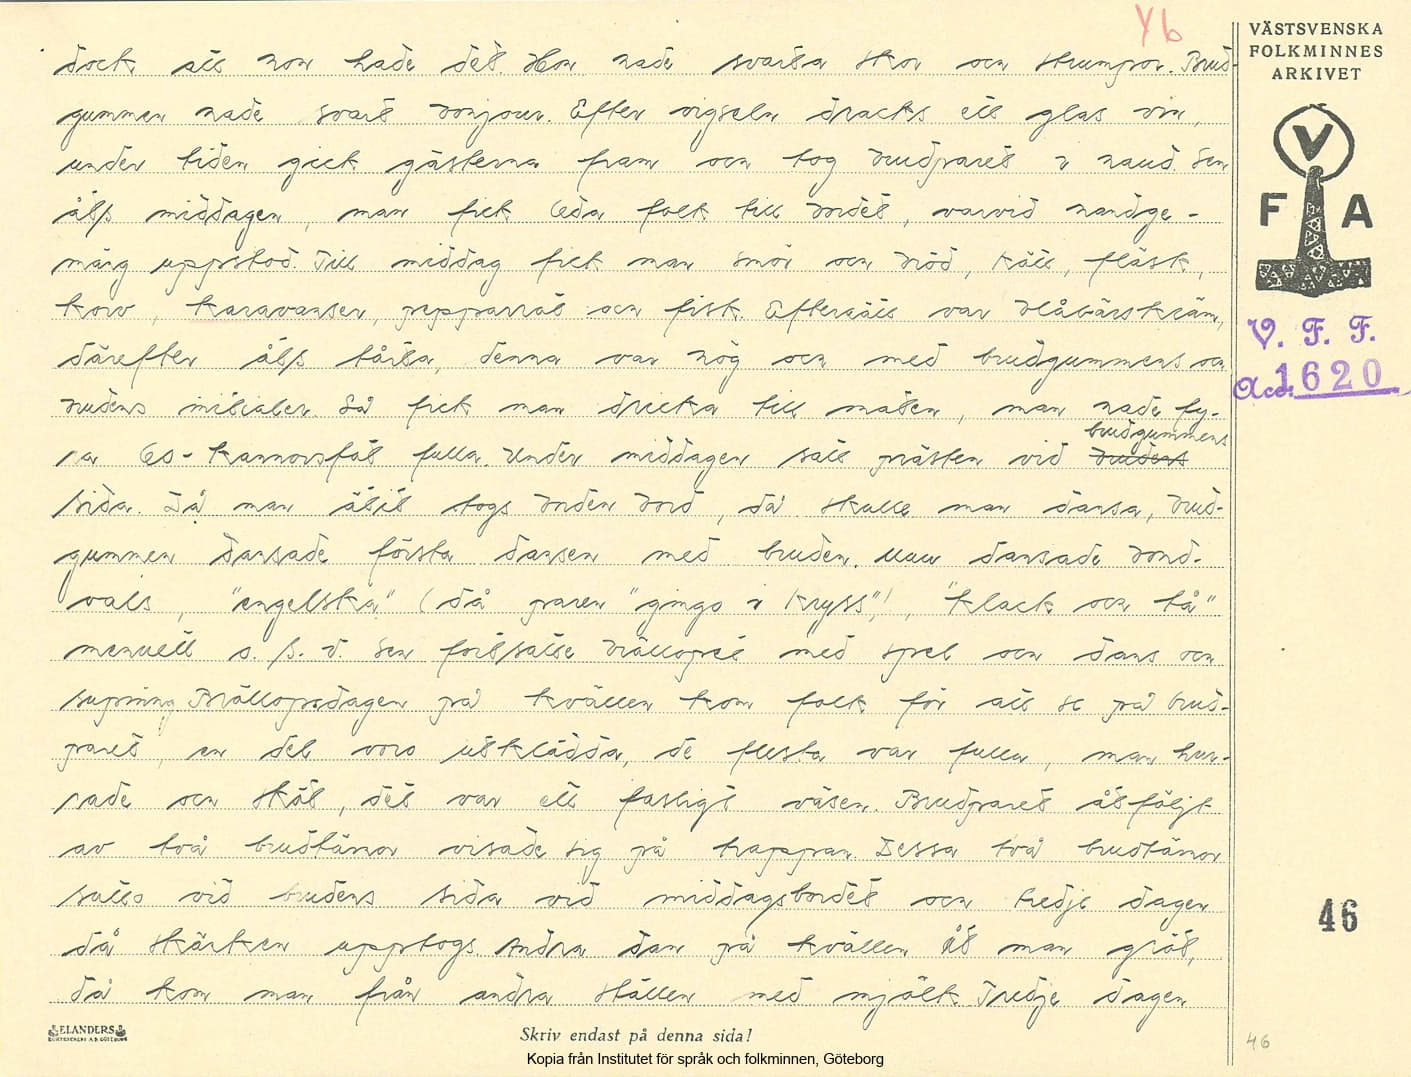 Yb
VÄSTSVENSKA
FOLKMINNES
ARKIVET
V
F A
V. F. F.
Acc. 1620
dock att hon hade det. Hon hade svarta skor och strumpor. Brud-
gummen hade svart bonjour. Efter vigseln dracks ett glas vin,
under tiden gick gästerna fram och tog brudparet i hand. Sen
åts middagen, man fick leda folk till bordet, varvid handge-
mäng uppstod. Till middag fick man smör och bröd, kått, fläsk,
korv, karavanser, pepparrot och fisk. Efterrätt var blåbärskräm,
därefter åts tårta, denna var hög och med brudgummens och
brudens initialer. Så fick man dricka till maten, man hade fy-
ra 60-kannorsfat fulla. Under middagen satt prästen vid brudens brudgummens
sida. Då man ätit togs borden bort, då skulle man dansa, brud-
gummen dansade första dansen med bruden. Man dansade bond-
vals, "engelska" (då paren "gingo i kryss"), "klack och tå"
menuett o. s. v. Sen fortsatte bröllopet med spel och dans och
supning. Bröllopsdagen på kvällen kom folk för att se på brud-
paret, en del voro utklädda, de flesta var fulla, man hur-
rade och sköt, det var ett fasligt väsen. Brudparet åtföljt
av två brudtärnor visade sig på trappan. Dessa två brudtärnor
satto vid brudens sida vid middagsbordet och tredje dagen
då skärken upptogs. Andra dan på kvällen åt man gröt,
då kom man från andra ställen med mjölk. Tredje dagen
46
ELANDERS
Skriv endast på denna sida!
46
Kopia från Institutet för språk och folkminnen, Göteborg